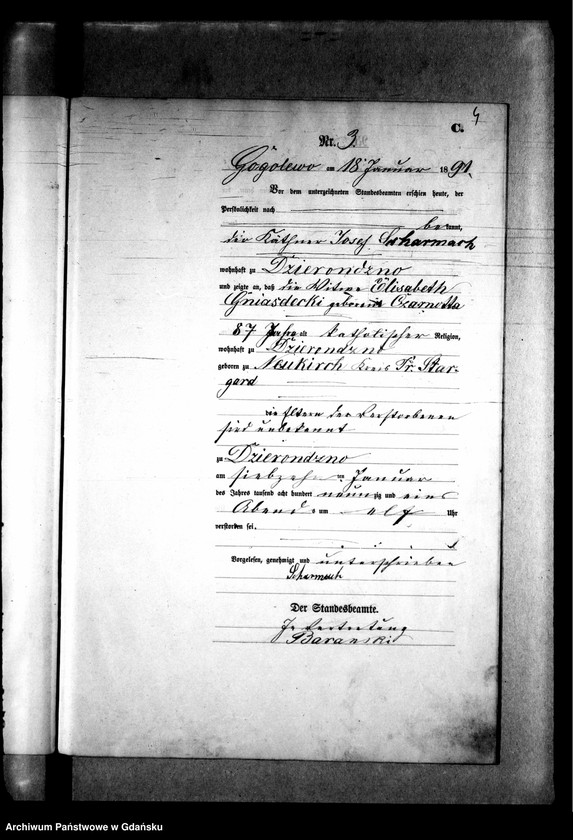 4
C.
Nr. 3
Gogolewo am 18 Januar 1891.
Vor dem unterzeichneten Standesbeamten erschien heute, der
Persönlichkeit nach
bekannt,
der Käthner Josef Scharmach
wohnhaft zu Dzierondzno
und zeigte an, daß die Witwe Elisabeth
Gniasdecki geborene Czarnotta
87 Jahre alt katholischer Religion,
wohnhaft zu Dzierondzno
geboren zu Neukirch Kreis Pr. Star-
gard
die Eltern der Verstorbenen
sind unbekannt
zu Dzierondzno
am siebzehn ten Januar
des Jahres tausend acht hundert neunzig und eins
Abends um elf Uhr
verstorben sei.
Vorgelesen, genehmigt und unterschrieben
Scharmach
Der Standesbeamte.
In Vertretung
Baranski
Archiwum Państwowe w Gdańsku